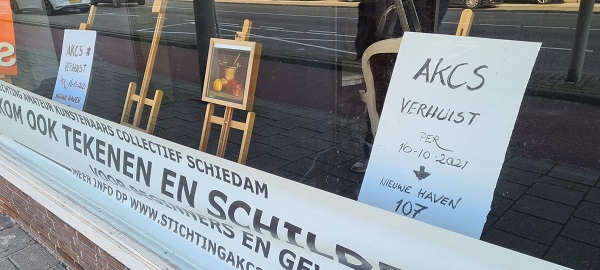 AKCS
VERHUIST
PER
16-10-2021
NIEUWE HAVEN
AKCS
VERHUIST
PER
16-10-2021
NIEUWE HAVEN
107
STICHTING AMATEUR KUNSTENAARS COLLECTIEF SCHIEDAM
KOM OOK TEKENEN EN SCHILD
VOOR BEGINNERS EN GEV
MEER INFO OP WWW.STICHTINGAKCS